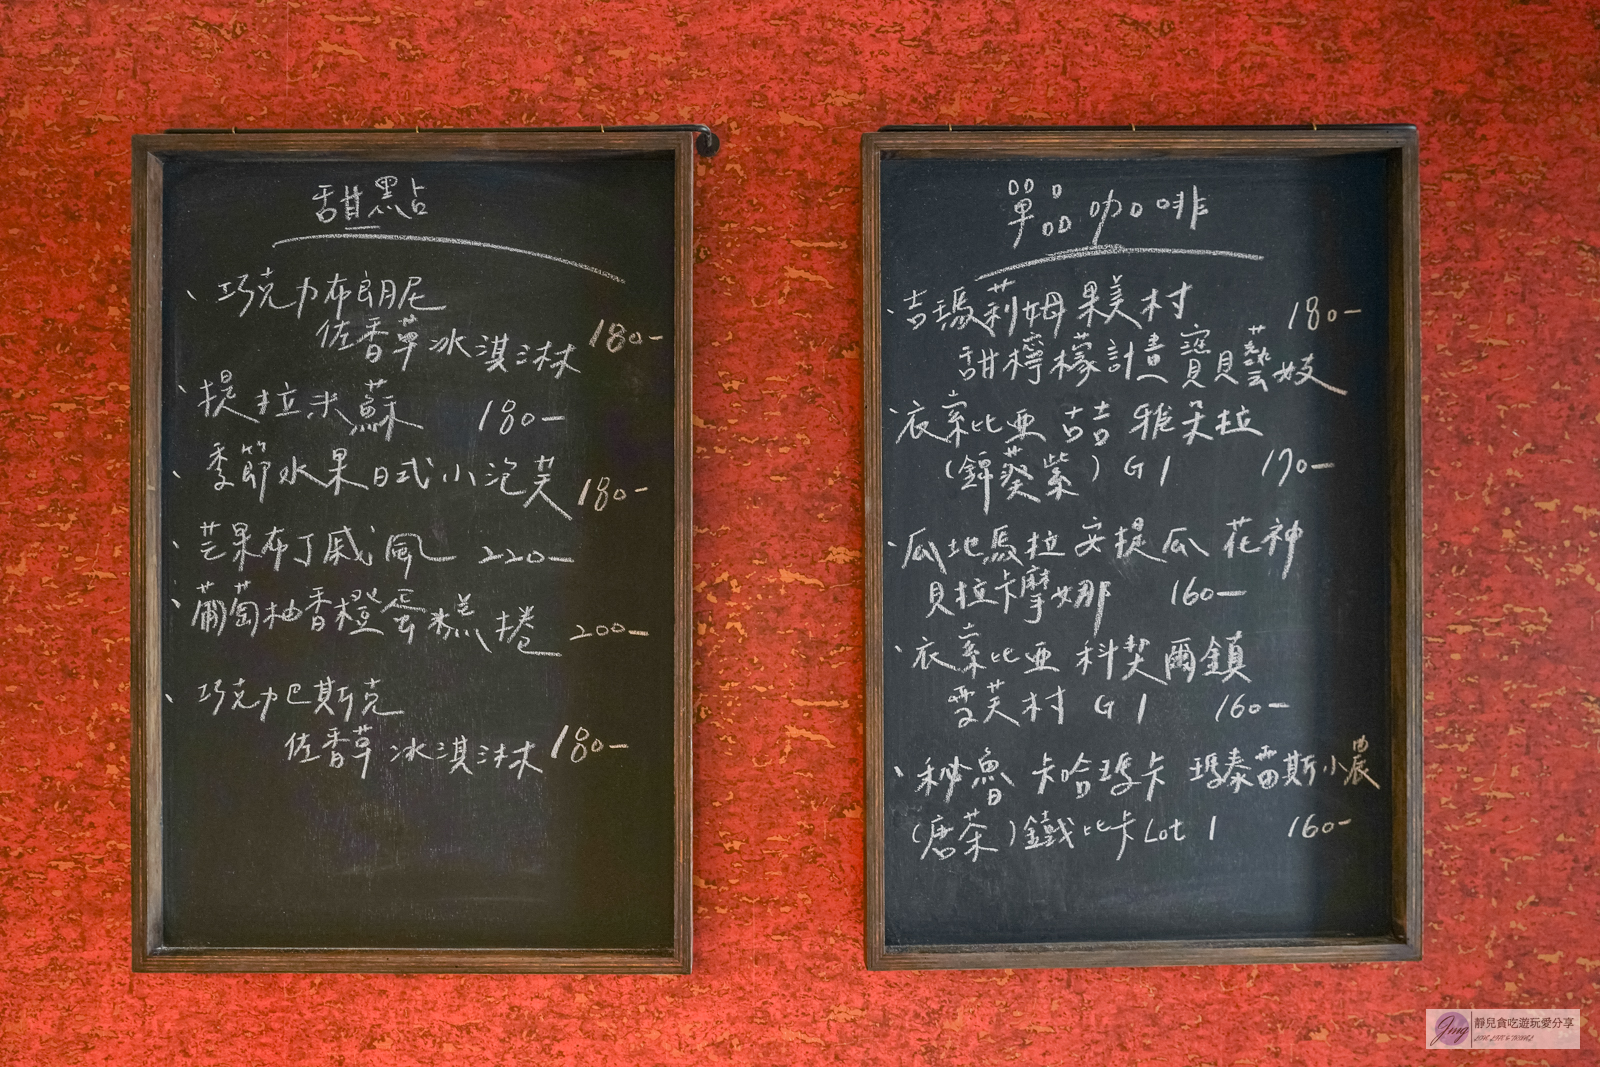 甜點
、巧克力布朗尼
佐香草冰淇淋 180-
、提拉米蘇 180-
、季節水果日式小泡芙 180-
、芒果布丁戚風 220-
、葡萄柚香橙蛋糕捲 200-
、巧克力巴斯克
佐香草冰淇淋 180-
單品咖啡
、吉瑪莉姆果美村 180-
甜檸檬計畫 寶貝藝妓
、衣索比亞 古吉 雅朵拉
(錦葵紫) G1 170-
、瓜地馬拉 安提瓜 花神
貝拉卡摩娜 160-
、衣索比亞 科契爾鎮
雪芙村 G1 160-
、秘魯 卡哈瑪卡 瑪泰蕾斯小農
(唐茶)鐵比卡 Lot 1 160-
Jmg 靜兒貪吃遊玩愛分享